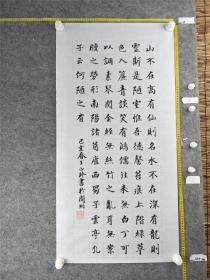 山不在高有仙則名水不在深有龍則
靈斯是陋室惟吾德馨苔痕上階綠草
色入簾青談笑有鴻儒往來無白丁可
以調素琴閱金經無絲竹之亂耳無案
牘之勞形南陽諸葛廬西蜀子雲亭孔
子云何陋之有
己亥春